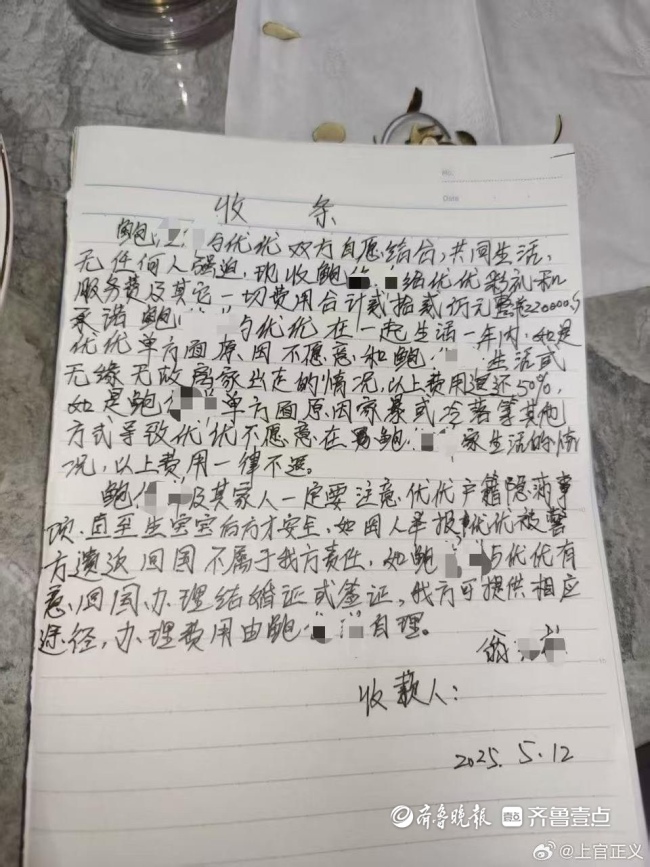 No:
Date
收 条
鲍 与优优双方自愿结合,共同生活,
无任何人强迫,现收鲍 给优优彩礼和
服务费及其它一切费用合计贰拾贰万元整¥220000
承诺鲍 与优优在一起生活一年内,如是
优优单方面原因不愿意和鲍 生活或
无缘无故离家出走的情况,以上费用退还50%,
如是鲍 单方面原因家暴或冷落等其他
方式导致优优不愿意在男鲍 家生活的情
况,以上费用一律不退。
鲍 及其家人一定要注意优优户籍隐瞒事
项,直至生宝宝后方才安全,如因人举报优优被警
方遣返回国不属于我方责任,如鲍 与优优有
意回国办理结婚证或签证,我方可提供相应
途径,办理费用由鲍 自理。
翁
收款人:
2025. 5. 12
齐鲁晚报 齐鲁壹点
@上官正义